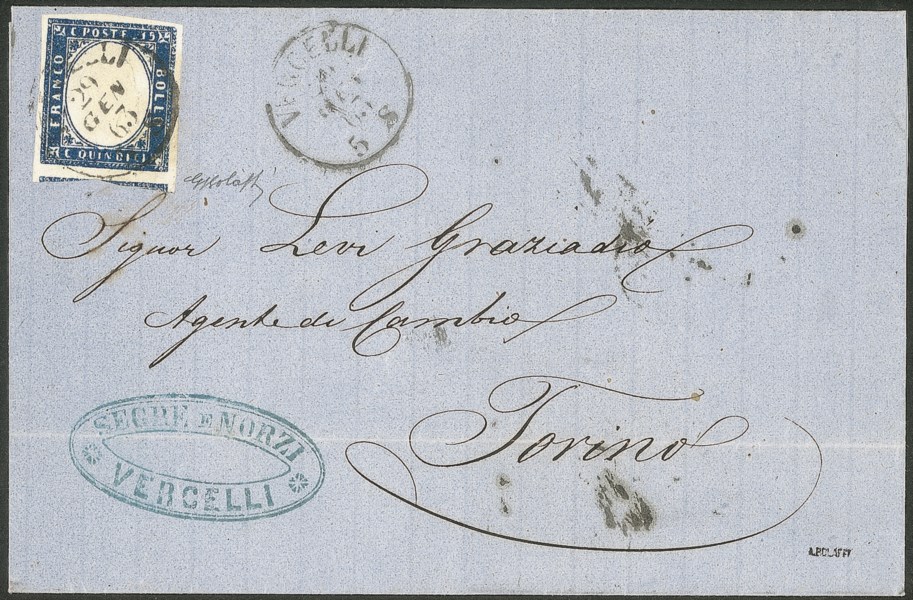 C POSTE 15
FRANCO
BOLLO
C QUINDICI
ELLI
29
GEN
63
VERCELLI
5 S
Signor Levi Graziadio
Agente di Cambio
Torino
SEGRE E NORZI
VERCELLI
A.BOLAFFI